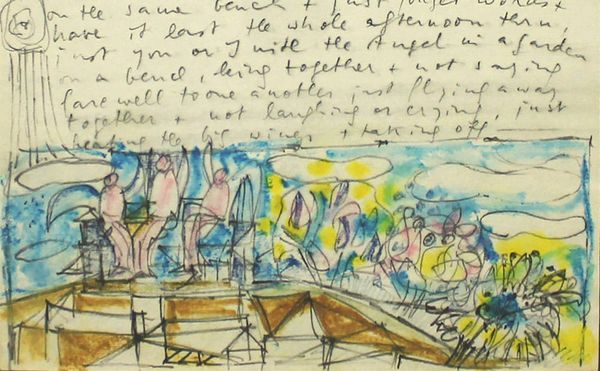 on the same bench + just forget words +
have it last the whole afternoon thru,
just you or I with the Angel in a garden
on a bench, being together + not saying
farewell to one another just flying away
together + not laughing or crying, just
hearing the big wings + taking off